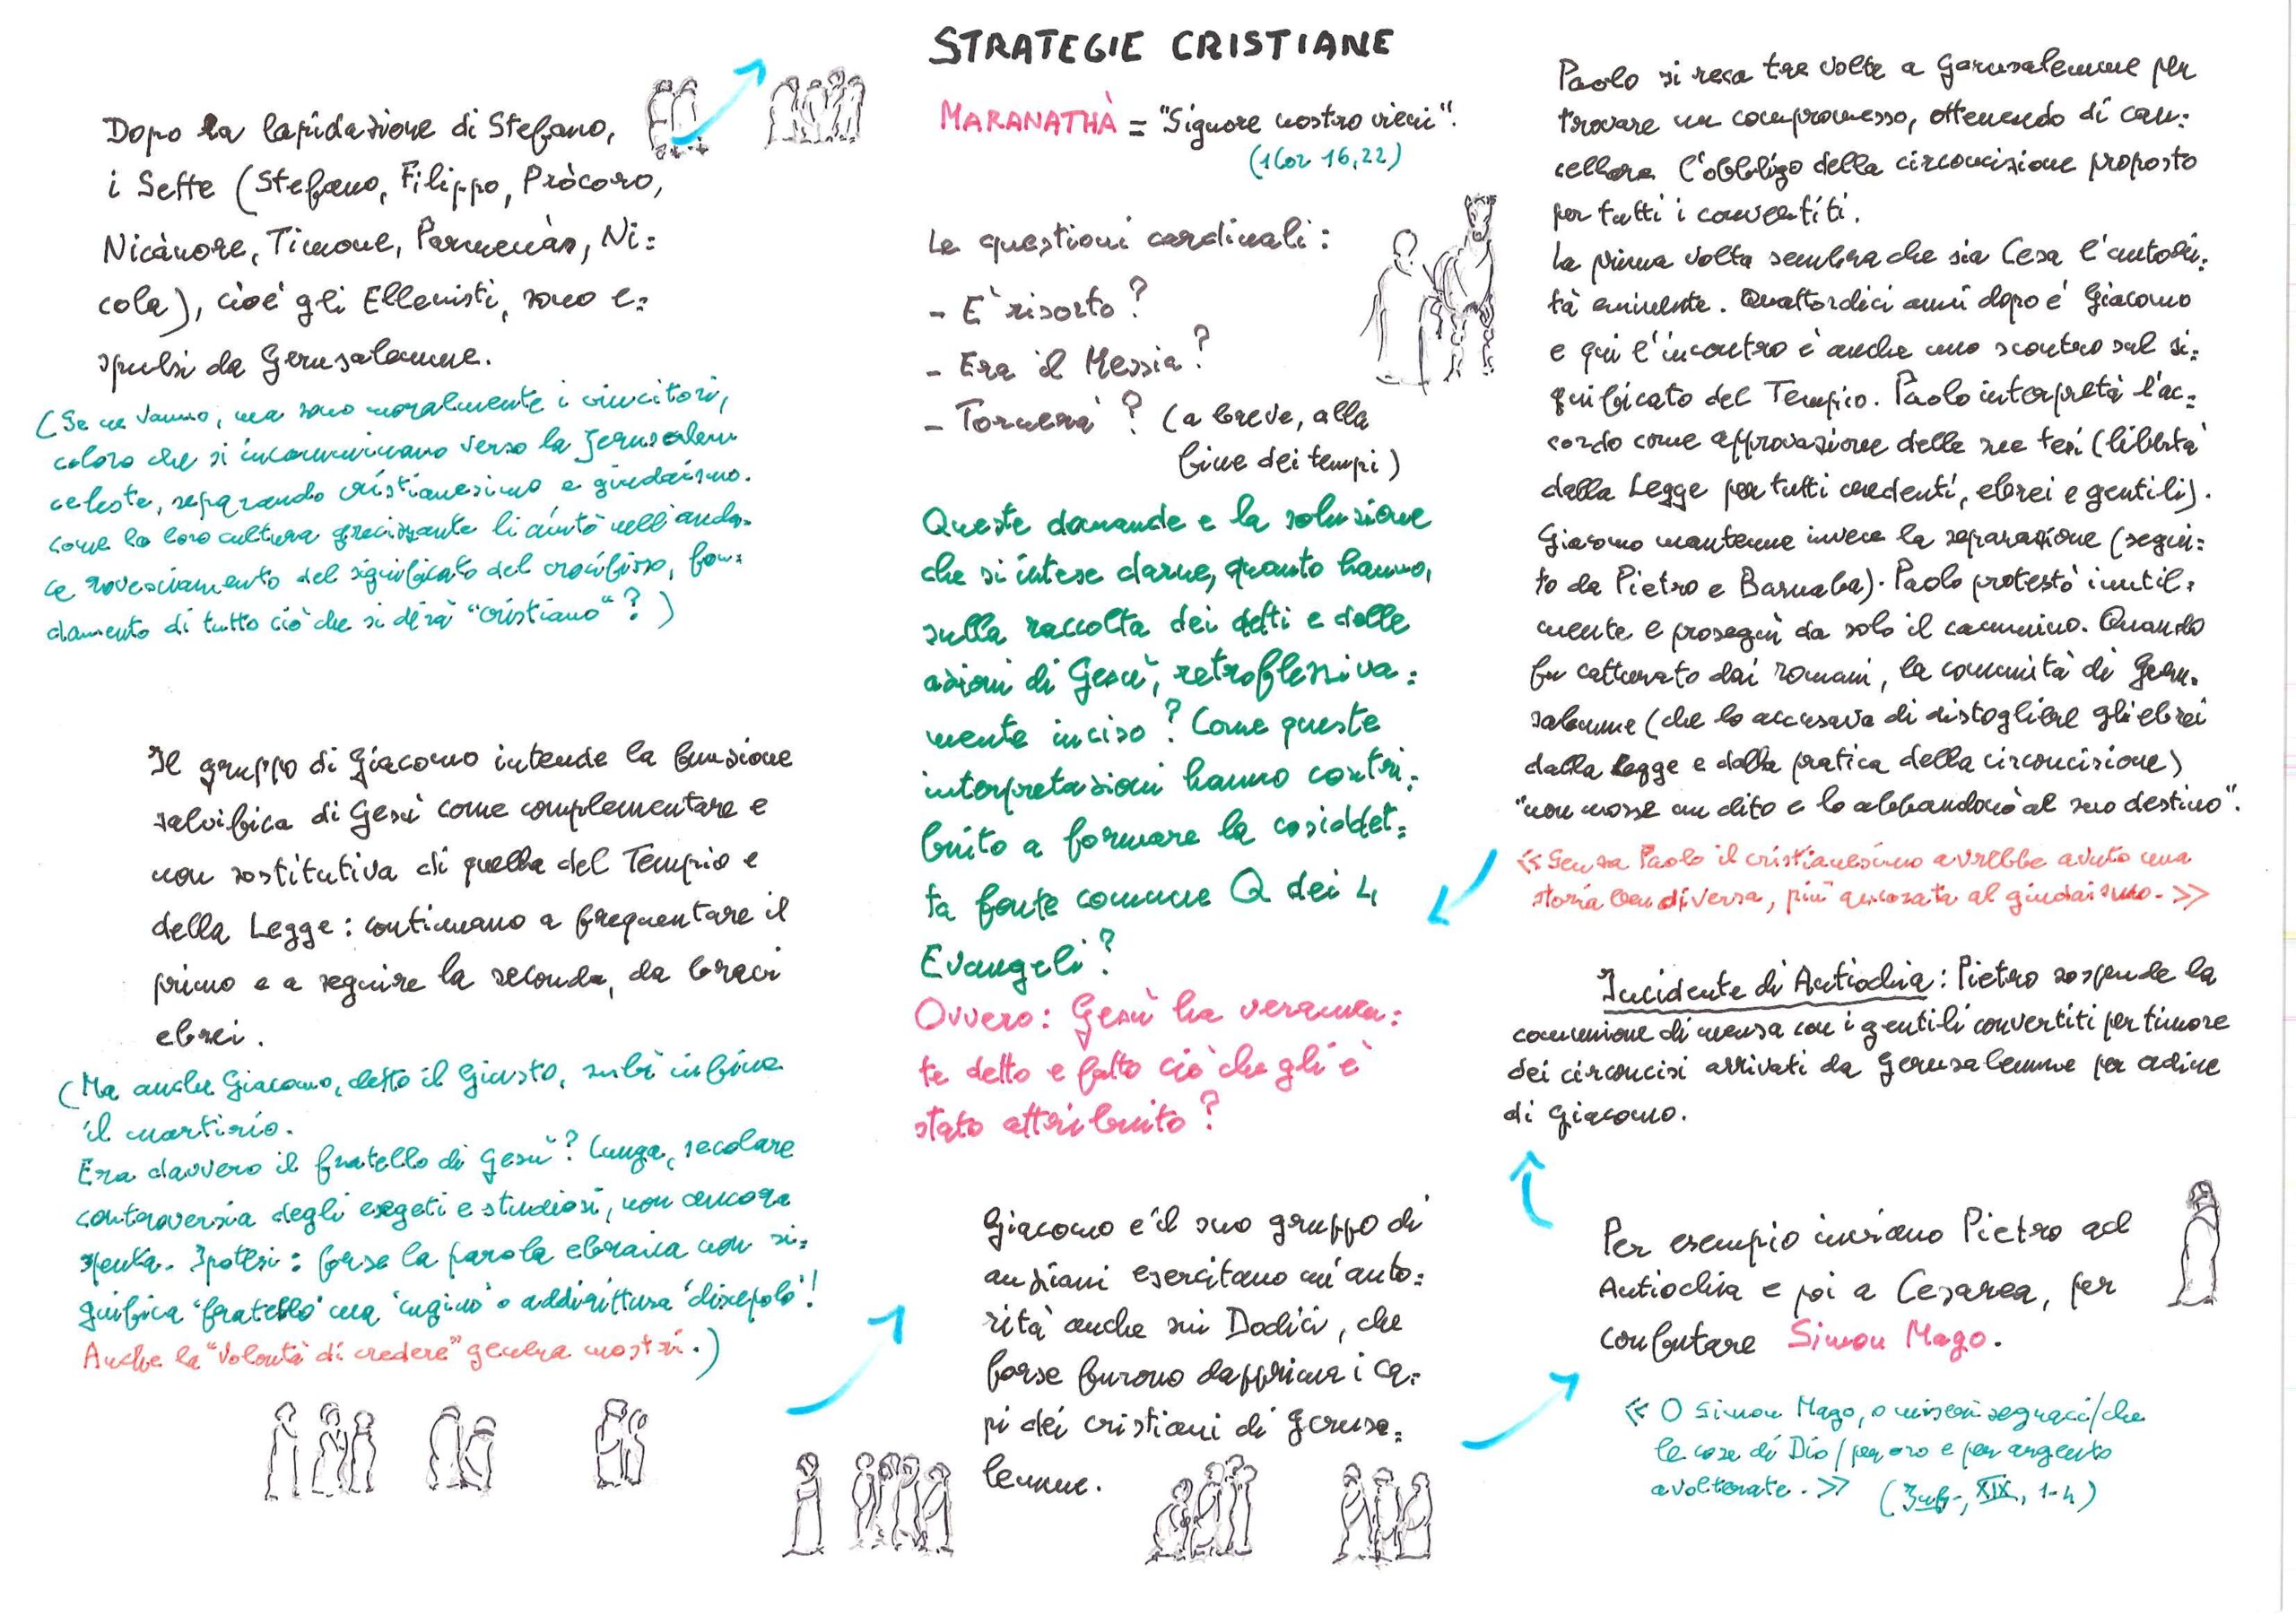 STRATEGIE CRISTIANE
Dopo la lapidazione di Stefano,
i Sette (Stefano, Filippo, Pròcoro,
Nicànore, Timone, Parmenàs, Ni=
cola), cioè gli Ellenisti, sono e=
spulsi da Gerusalemme.
(Se ne vanno, ma sono moralmente i vincitori,
coloro che si incamminano verso la Jerusalem
celeste, separando cristianesimo e giudaismo.
Come la loro cultura grecizzante li aiutò nell'auda=
ce rovesciamento del significato del crocifisso, fon=
damento di tutto ciò che si dirà "cristiano"?)
Il gruppo di Giacomo intende la funzione
salvifica di Gesù come complementare e
non sostitutiva di quella del Tempio e
della Legge: continuano a frequentare il
primo e a seguire la seconda, da bravi
ebrei.
(Ma anche Giacomo, detto il Giusto, subì infine
il martirio.
Era davvero il fratello di Gesù? Lunga, secolare
controversia degli esegeti e studiosi, non ancora
spenta. Ipotesi: forse la parola ebraica non si=
gnifica 'fratello' ma 'cugino' o addirittura 'discepolo'!
Anche la "volontà di credere" genera mostri.)
MARANATHÀ = "Signore nostro vieni".
(1 Cor 16,22)
Le questioni cardinali:
- E' risorto?
- Era il Messia?
- Tornerà? (a breve, alla
fine dei tempi)
Queste domande e la soluzione
che si intese darne, quanto hanno,
sulla raccolta dei detti e delle
azioni di Gesù, retroflessiva=
mente inciso? Come queste
interpretazioni hanno contri=
buito a formare la cosiddet=
ta fonte comune Q dei 4
Evangeli?
Ovvero: Gesù ha veramen=
te detto e fatto ciò che gli è
stato attribuito?
Giacomo e il suo gruppo di
anziani esercitano un'auto=
rità anche sui Dodici, che
forse furono dapprima i ca=
pi dei cristiani di Gerusa=
lemme.
Paolo si reca tre volte a Gerusalemme per
trovare un compromesso, ottenendo di can=
cellare l'obbligo della circoncisione proposto
per tutti i convertiti.
La prima volta sembra che sia Cefa l'autori=
tà eminente. Quattordici anni dopo è Giacomo
e qui l'incontro è anche uno scontro sul si=
gnificato del Tempio. Paolo interpreta l'ac=
cordo come approvazione delle sue tesi (libertà
dalla Legge per tutti credenti, ebrei e gentili).
Giacomo mantenne invece la separazione (segui=
to da Pietro e Barnaba). Paolo protestò inutil=
mente e proseguì da solo il cammino. Quando
fu catturato dai romani, la comunità di Geru=
salemme (che lo accusava di distogliere gli ebrei
dalla legge e dalla pratica della circoncisione)
"non mosse un dito e lo abbandonò al suo destino".
«Senza Paolo il cristianesimo avrebbe avuto una
storia ben diversa, più ancorata al giudaismo.»
Incidente di Antiochia: Pietro sospende la
comunione di mensa con i gentili convertiti per timore
dei circoncisi arrivati da Gerusalemme per ordine
di Giacomo.
Per esempio inviano Pietro ad
Antiochia e poi a Cesarea, per
confutare Simon Mago.
«O Simon Mago, o miseri seguaci/che
le cose di Dio/per oro e per argento
avolterate.» (Inf., XIX, 1-4)